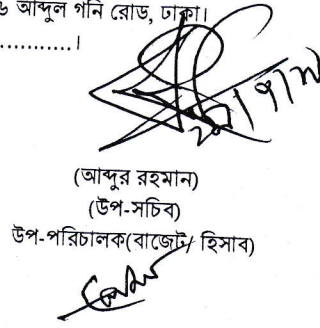 আব্দুল গনি রোড, ঢাকা।
............।
(আব্দুর রহমান)
(উপ-সচিব)
উপ-পরিচালক(বাজেট/ হিসাব)